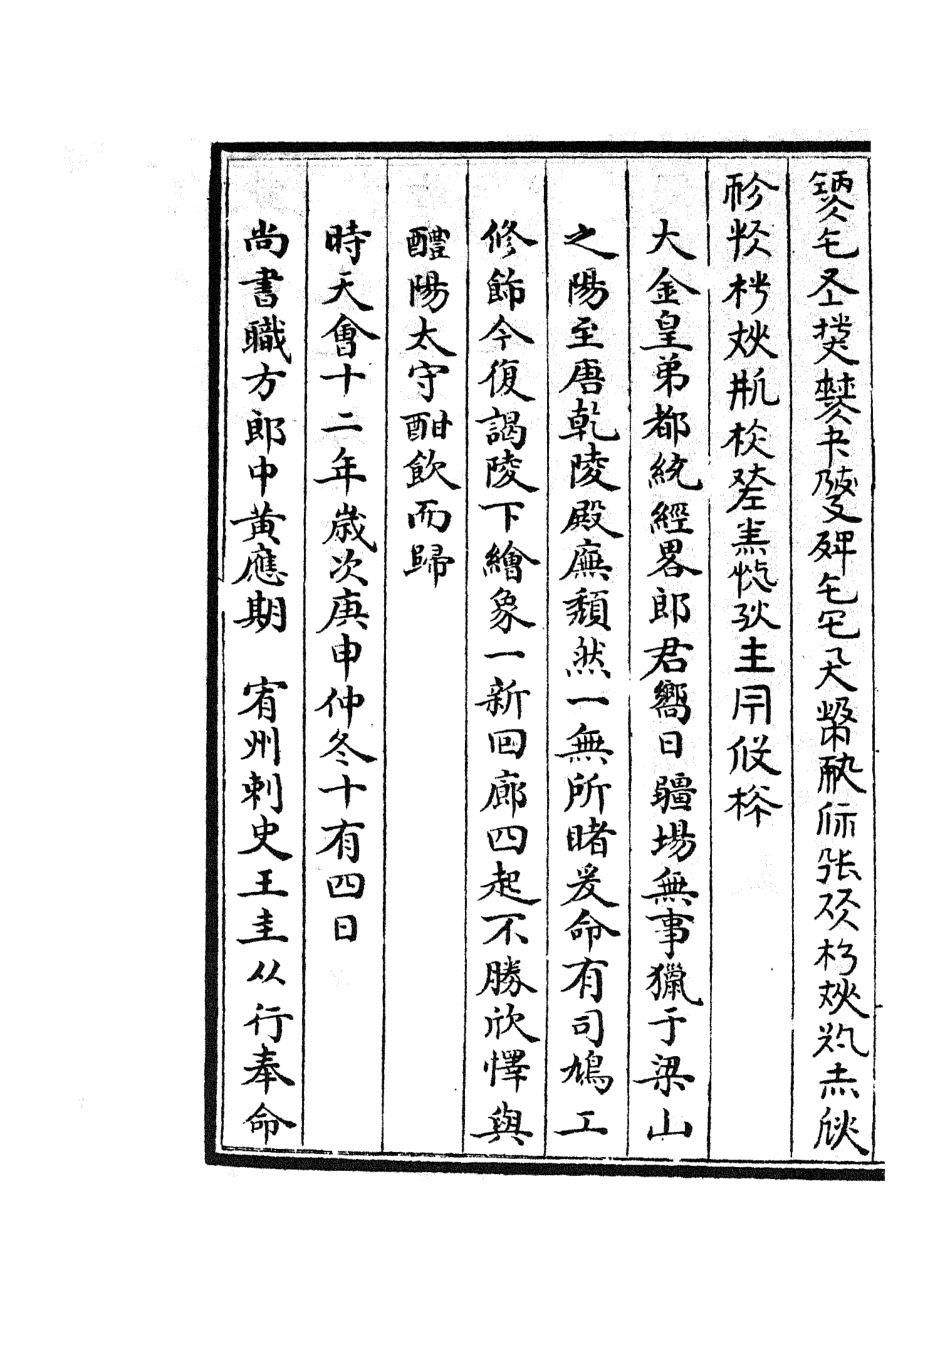 大金皇弟都統經畧郎君嚮日疆場無事獵于梁山
之陽至唐乾陵殿廡頹然一無所睹爰命有司鳩工
修飾今復謁陵下繪象一新回廊四起不勝欣懌與
醴陽太守酣飲而歸
時天會十二年歲次庚申仲冬十有四日
尚書職方郎中黃應期　宥州刺史王圭从行奉命